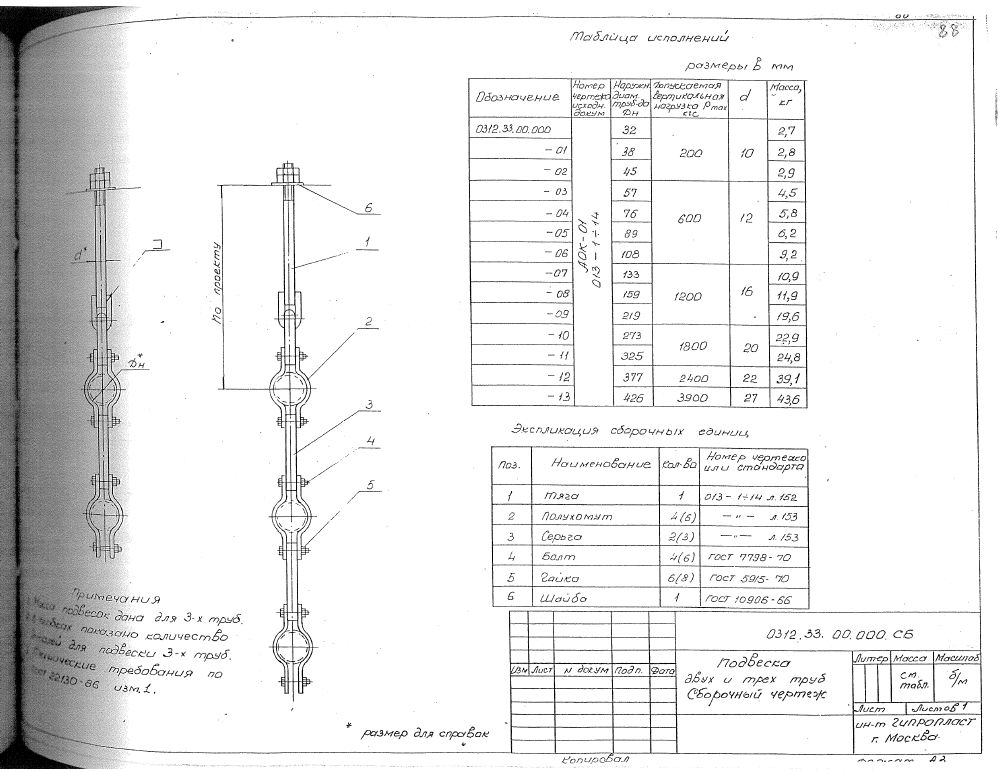 88
Таблица исполнений
размеры в мм
Обозначение | Номер чертежа исходн. докум | Наружн. диам. труб-да Дн | Допускаемая вертикальная нагрузка Pmax кгс | d | Масса, кг
0312.33.00.000 | АОК-01 013-1÷14 | 32 | 200 | 10 | 2,7
-01 | 38 | 2,8
-02 | 45 | 2,9
-03 | 57 | 600 | 12 | 4,5
-04 | 76 | 5,8
-05 | 89 | 6,2
-06 | 108 | 9,2
-07 | 133 | 1200 | 16 | 10,9
-08 | 159 | 11,9
-09 | 219 | 19,6
-10 | 273 | 1800 | 20 | 22,9
-11 | 325 | 24,8
-12 | 377 | 2400 | 22 | 39,1
-13 | 426 | 3900 | 27 | 43,6
Экспликация сборочных единиц
Поз. | Наименование | Кол-во | Номер чертежа или стандарта
1 | Тяга | 1 | 013-1÷14 л.152
2 | Полухомут | 4(6) | —"— л.153
3 | Серьга | 2(3) | —"— л.153
4 | Болт | 4(6) | ГОСТ 7798-70
5 | Гайка | 6(8) | ГОСТ 5915-70
6 | Шайба | 1 | ГОСТ 10906-66
d*
Дн*
По проекту
6
1
2
3
4
5
Примечания
Масса подвесок дана для 3-х труб.
показано количество
для подвески 3-х труб.
требования по
22130-66 изм.1.
* размер для справок
0312.33.00.000.СБ
Изм | Лист | N докум | Подп. | Дата
Подвеска
двух и трех труб
Сборочный чертеж
Литер | Масса | Масштаб
см. табл. | б/м
Лист | Листов 1
ин-т Гипропласт
г. Москва
Копировал
Формат А3